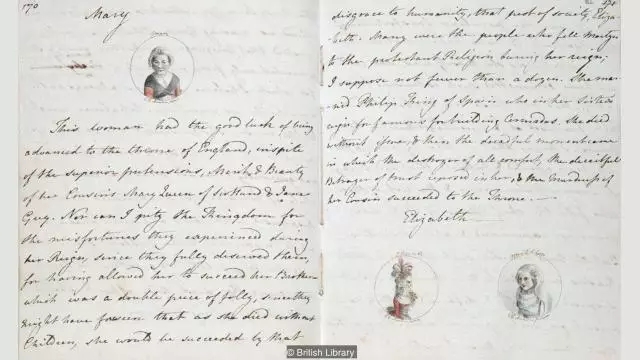 170
Mary
This woman had the good luck of being
advanced to the throne of England, inspite
of the superior pretensions, Merit, & Beauty
of her Cousins Mary Queen of Scotland & Jane
Grey. Nor can I pity the Kingdom for
the misfortunes they experienced during
her Reign, since they fully deserved them,
for having allowed her to succeed her Brother
which was a double peice of folly, since they
might have foreseen that as she died without
Children, she would be succeeded by that
171
disgrace to humanity, that pest of society, Eliza-
beth. Many were the people who fell Martyrs
to the protestant Religion during her reign;
I suppose not fewer than a dozen. She mar-
ried Philip King of Spain who in her Sister's
reign was famous for building Armadas. She died
without issue, & then the dreadful moment came
in which the destroyer of all comfort, the deceitful
Betrayer of trust reposed in her, & the Murderess of
her Cousin succeeded to the Throne.
Elizabeth
© British Library